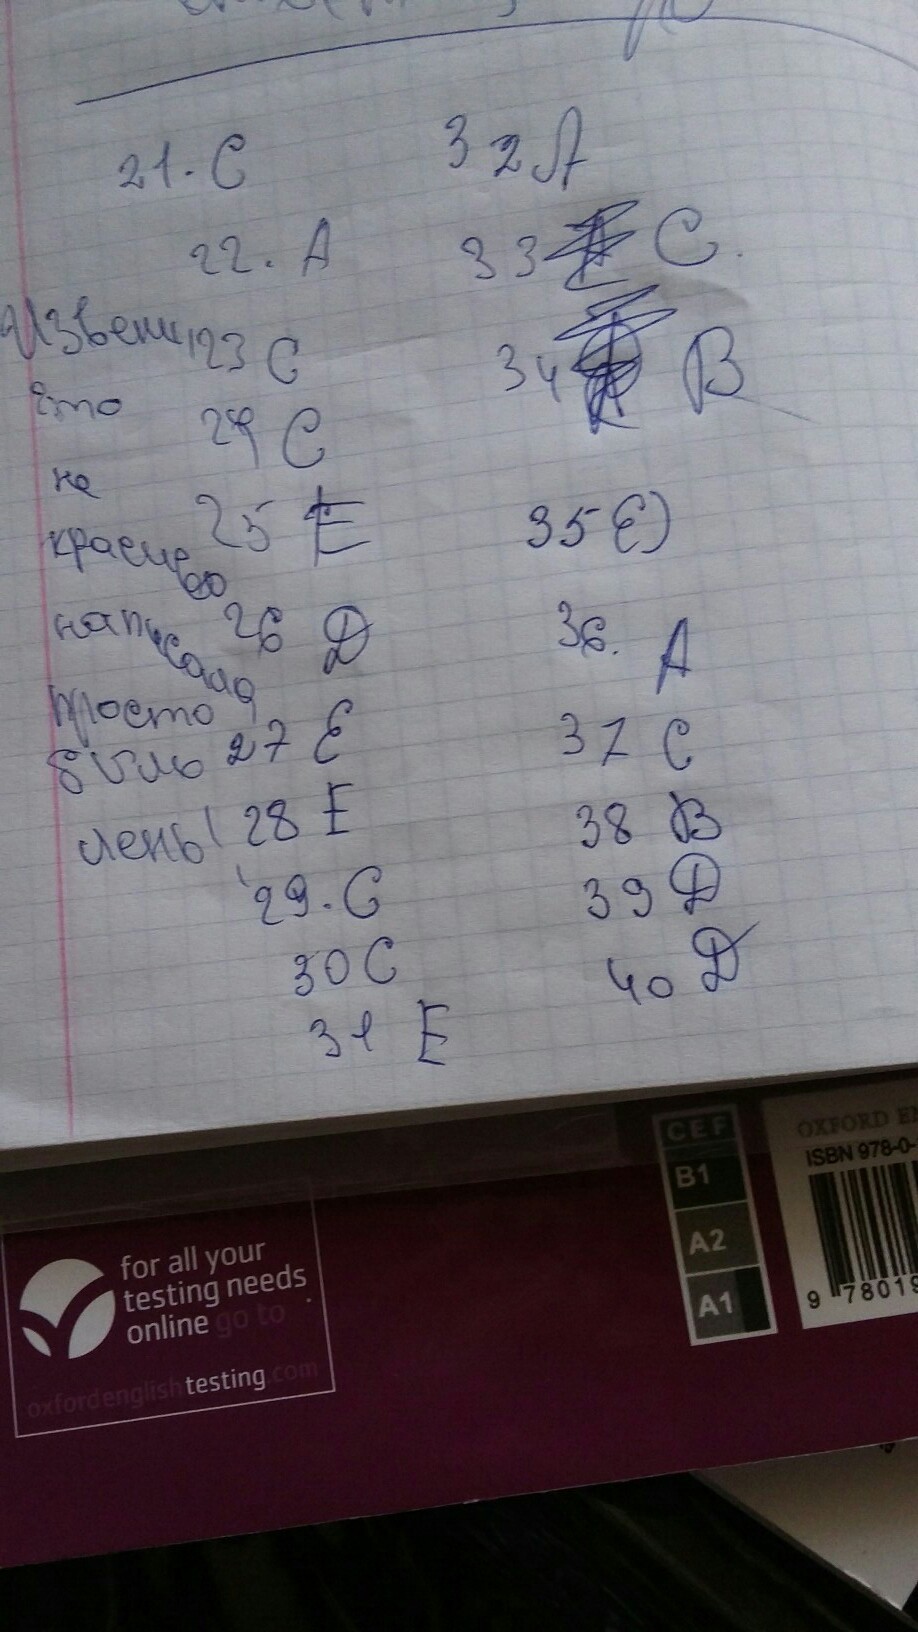 21. C
22. A
23 C
24 C
25 E
26 D
27 E
28 E
29. C
30 C
31 E
Извени
что
не
красиво
написала
просто
было
лень!
32 A
33 C.
34 B
35 E)
36. A
37 C
38 B
39 D
40 D
for all your
testing needs
online go to
oxfordenglishtesting.com
CEF
B1
A2
A1
OXFORD E
ISBN 978-0-
9 78019